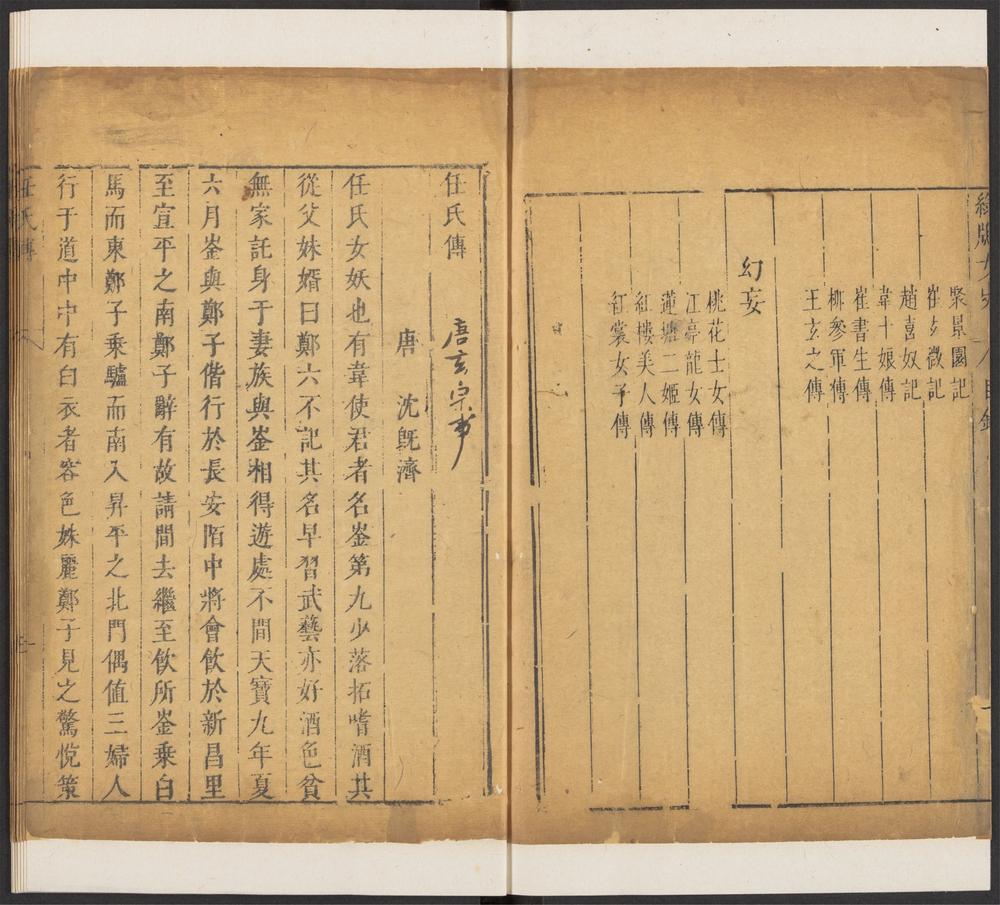 聚景園記
崔玄微記
趙喜奴記
韋十娘傳
崔書生傳
柳參軍傳
王玄之傳
幻妄
桃花士女傳
江亭龍女傳
蓮塘二姬傳
紅樓美人傳
紅裳女子傳
任氏傳
唐玄宗事
唐 沈既濟
任氏女妖也有韋使君者名崟第九少落拓嗜酒其
從父妹婿曰鄭六不記其名早習武藝亦好酒色貧
無家託身于妻族與崟相得遊處不間天寶九年夏
六月崟與鄭子偕行於長安陌中將會飲於新昌里
至宣平之南鄭子辭有故請間去繼至飲所崟乘白
馬而東鄭子乘驢而南入昇平之北門偶值三婦人
行于道中中有白衣者容色姝麗鄭子見之驚悅策
任氏傳